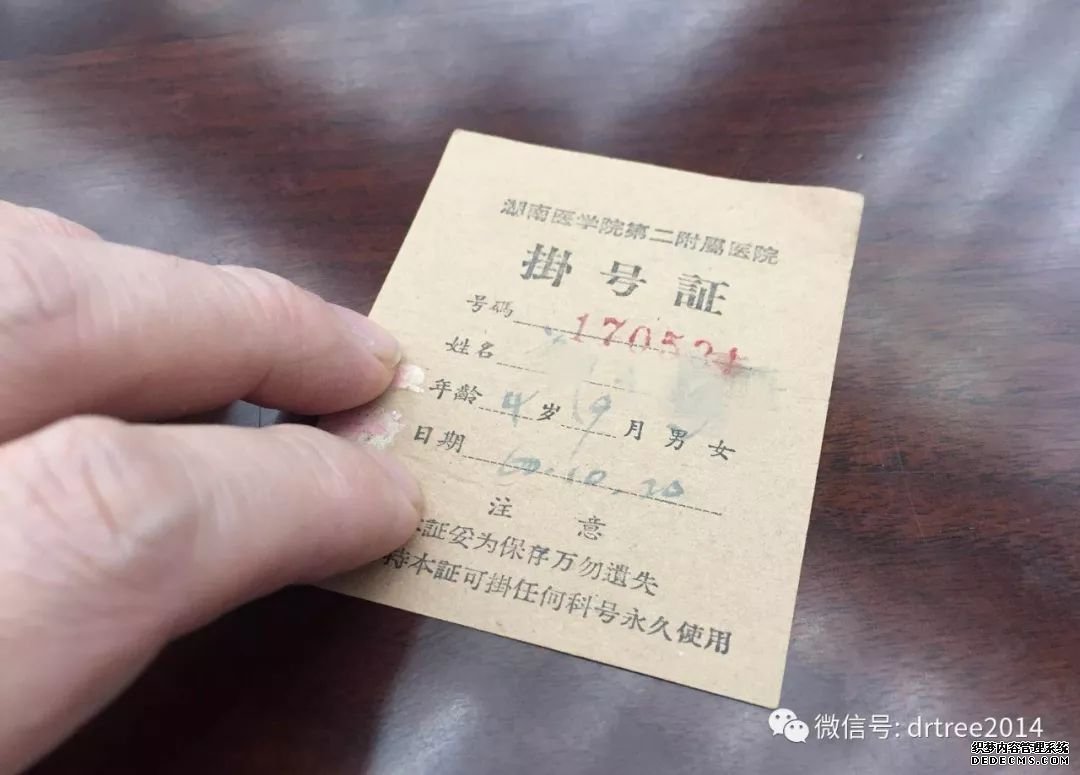 湖南医学院第二附屬医院
掛号証
号碼 170521
姓名
年齡 4 岁 9 月 男 女
日期 60.10.20
注意
本証妥为保存万勿遺失
持本証可掛任何科号永久使用
微信号: drtree2014
织梦内容管理系统
DEDECMS.COM